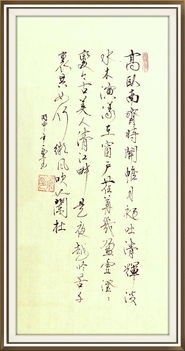 高臥南齋時開帷月初吐清輝淡
水木演漾在窗戶荏苒幾盈虛澄澄
變今古美人清江畔是夜越吟苦千
裏共如何微風吹蘭杜